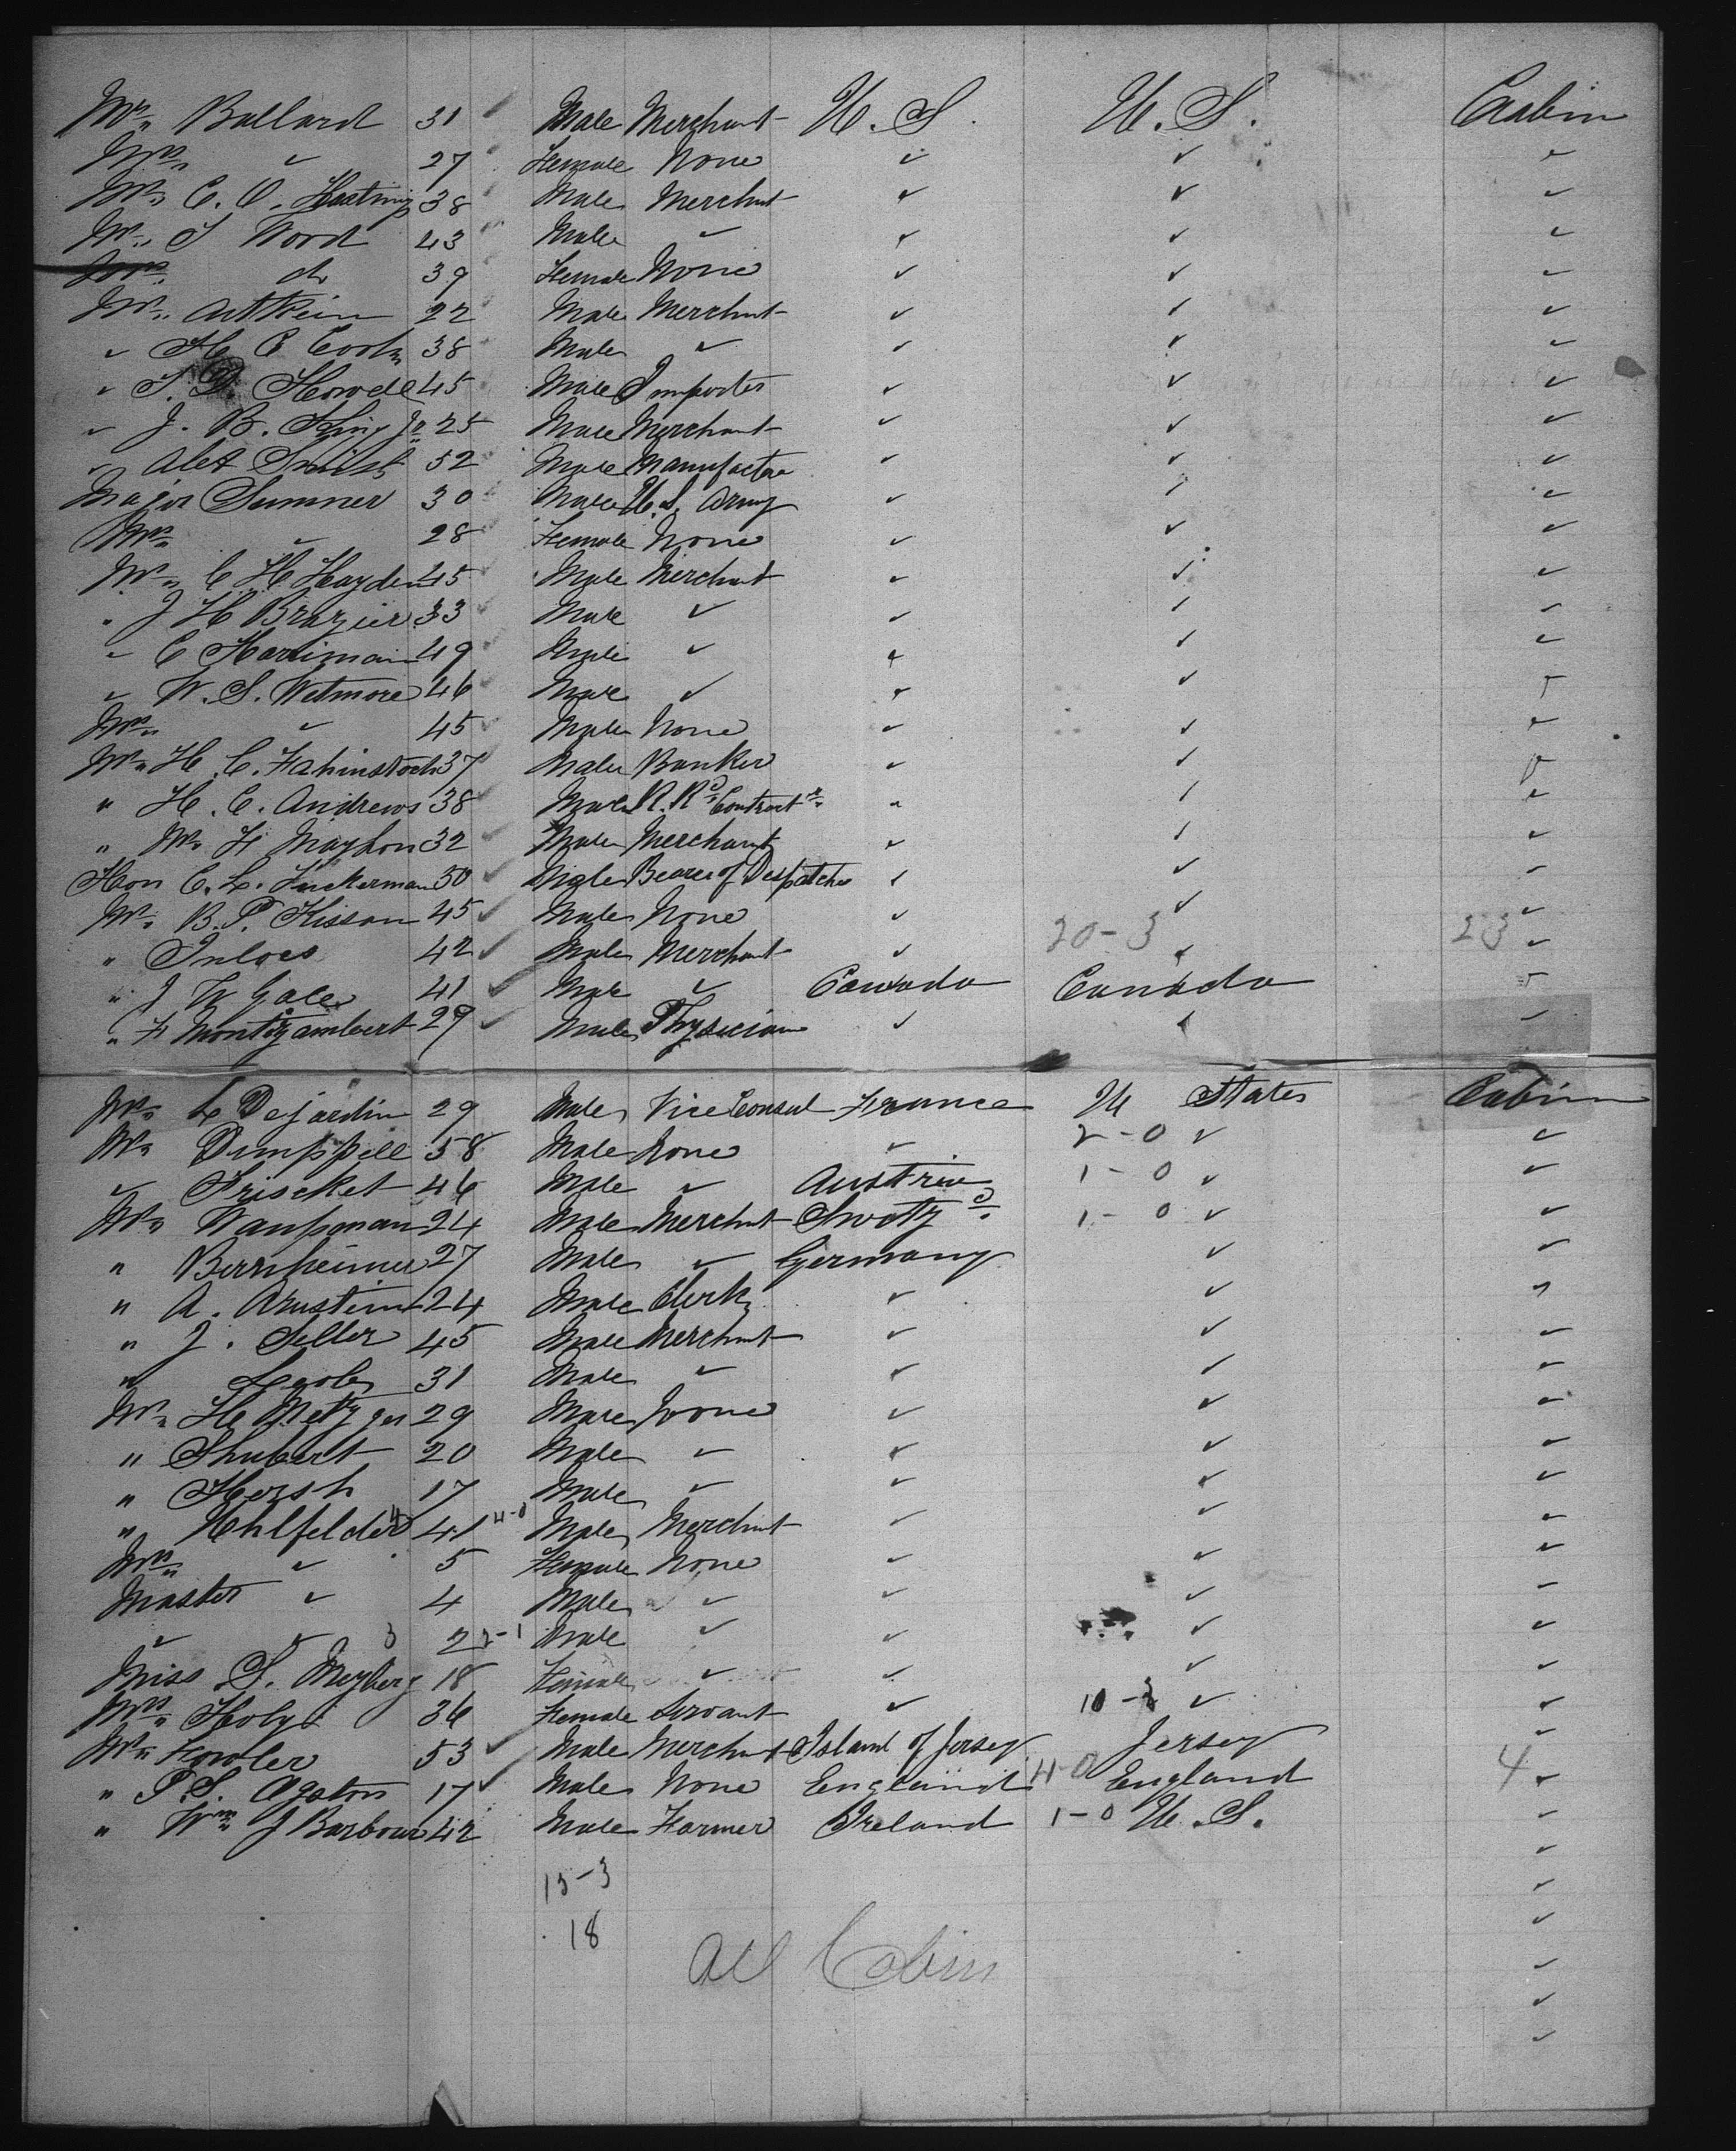 Mr. Ballard 31 Male Merchant U.S. U.S. Cabin
Mrs. " 27 Female None " " "
Mr. C. O. Hastings 38 Male Mercht " " "
Mr. S Wood 43 Male " " " "
Mrs. do 39 Female None " " "
Mr. Aitkein 22 Male Mercht " " "
" H C Cook 38 Male " " " "
" S. D. Howde 45 Male Importer " " "
" J. B. King Jr 25 Male Merchant " " "
" Alex Smith 52 Male Manufacter " " "
Major Sumner 30 Male U.S. Army " " "
Mrs. " 28 Female None " " "
Mr. C H Hayden 45 Male Merchant " " "
" J H Brazier 33 Male " " " "
" C Harriman 49 Male " " " "
" W. S. Wetmore 46 Male " " " "
Mrs. " 45 Male None " " "
Mr. H. C. Fahinstock 37 Male Banker " " "
" H. C. Andrews 38 Male R. Rd. Contractr. " " "
" W. H Mayhon 32 Male Merchant " " "
Hon C. L. Tuckerman 50 Male Bearer of Despatches " " "
Mr. B. P. Kissam 45 Male None " " "
20-3 23
" Inloes 42 Male Merchant " " "
" J W Gale 41 Male " Canada Canada "
" F Montizambert 29 Male Physician " " "
Mr. L Dejardin 29 Male Vice Consul France U States Cabin
Mr. Dimppell 58 Male None " 2-0 " "
" Friscket 46 Male " Austria 1-0 " "
Mr. 24 Male Mercht Switzd. 1-0 " "
" Bernheimer 27 Male " Germany " "
" A. Arnstein 24 Male Clerk " " "
" J. Seller 45 Male Merchant " " "
" 31 Male " " " "
Mr. H Metzger 29 Male None " " "
" Shubert 20 Male " " " "
" Hersh 17 Male " " " "
" Uhlfelder 41 4-0 Male Merchnt " " "
Mrs. " 5 Female None " " "
Master " 4 Male " " " "
" " 3 2 2-1 Male " " " "
Miss S. Meyberg 18 Female " " " "
Mrs. 36 Female Servant " 10-3 " "
Mr. Fowler 53 Male Merchant Island of Jersey Jersey "
" P. S. Agaton 17 Male None England 4-0 England 4 "
" Wm. J Barbour 42 Male Farmer Ireland 1-0 U.S. "
15-3
18
All Cabin